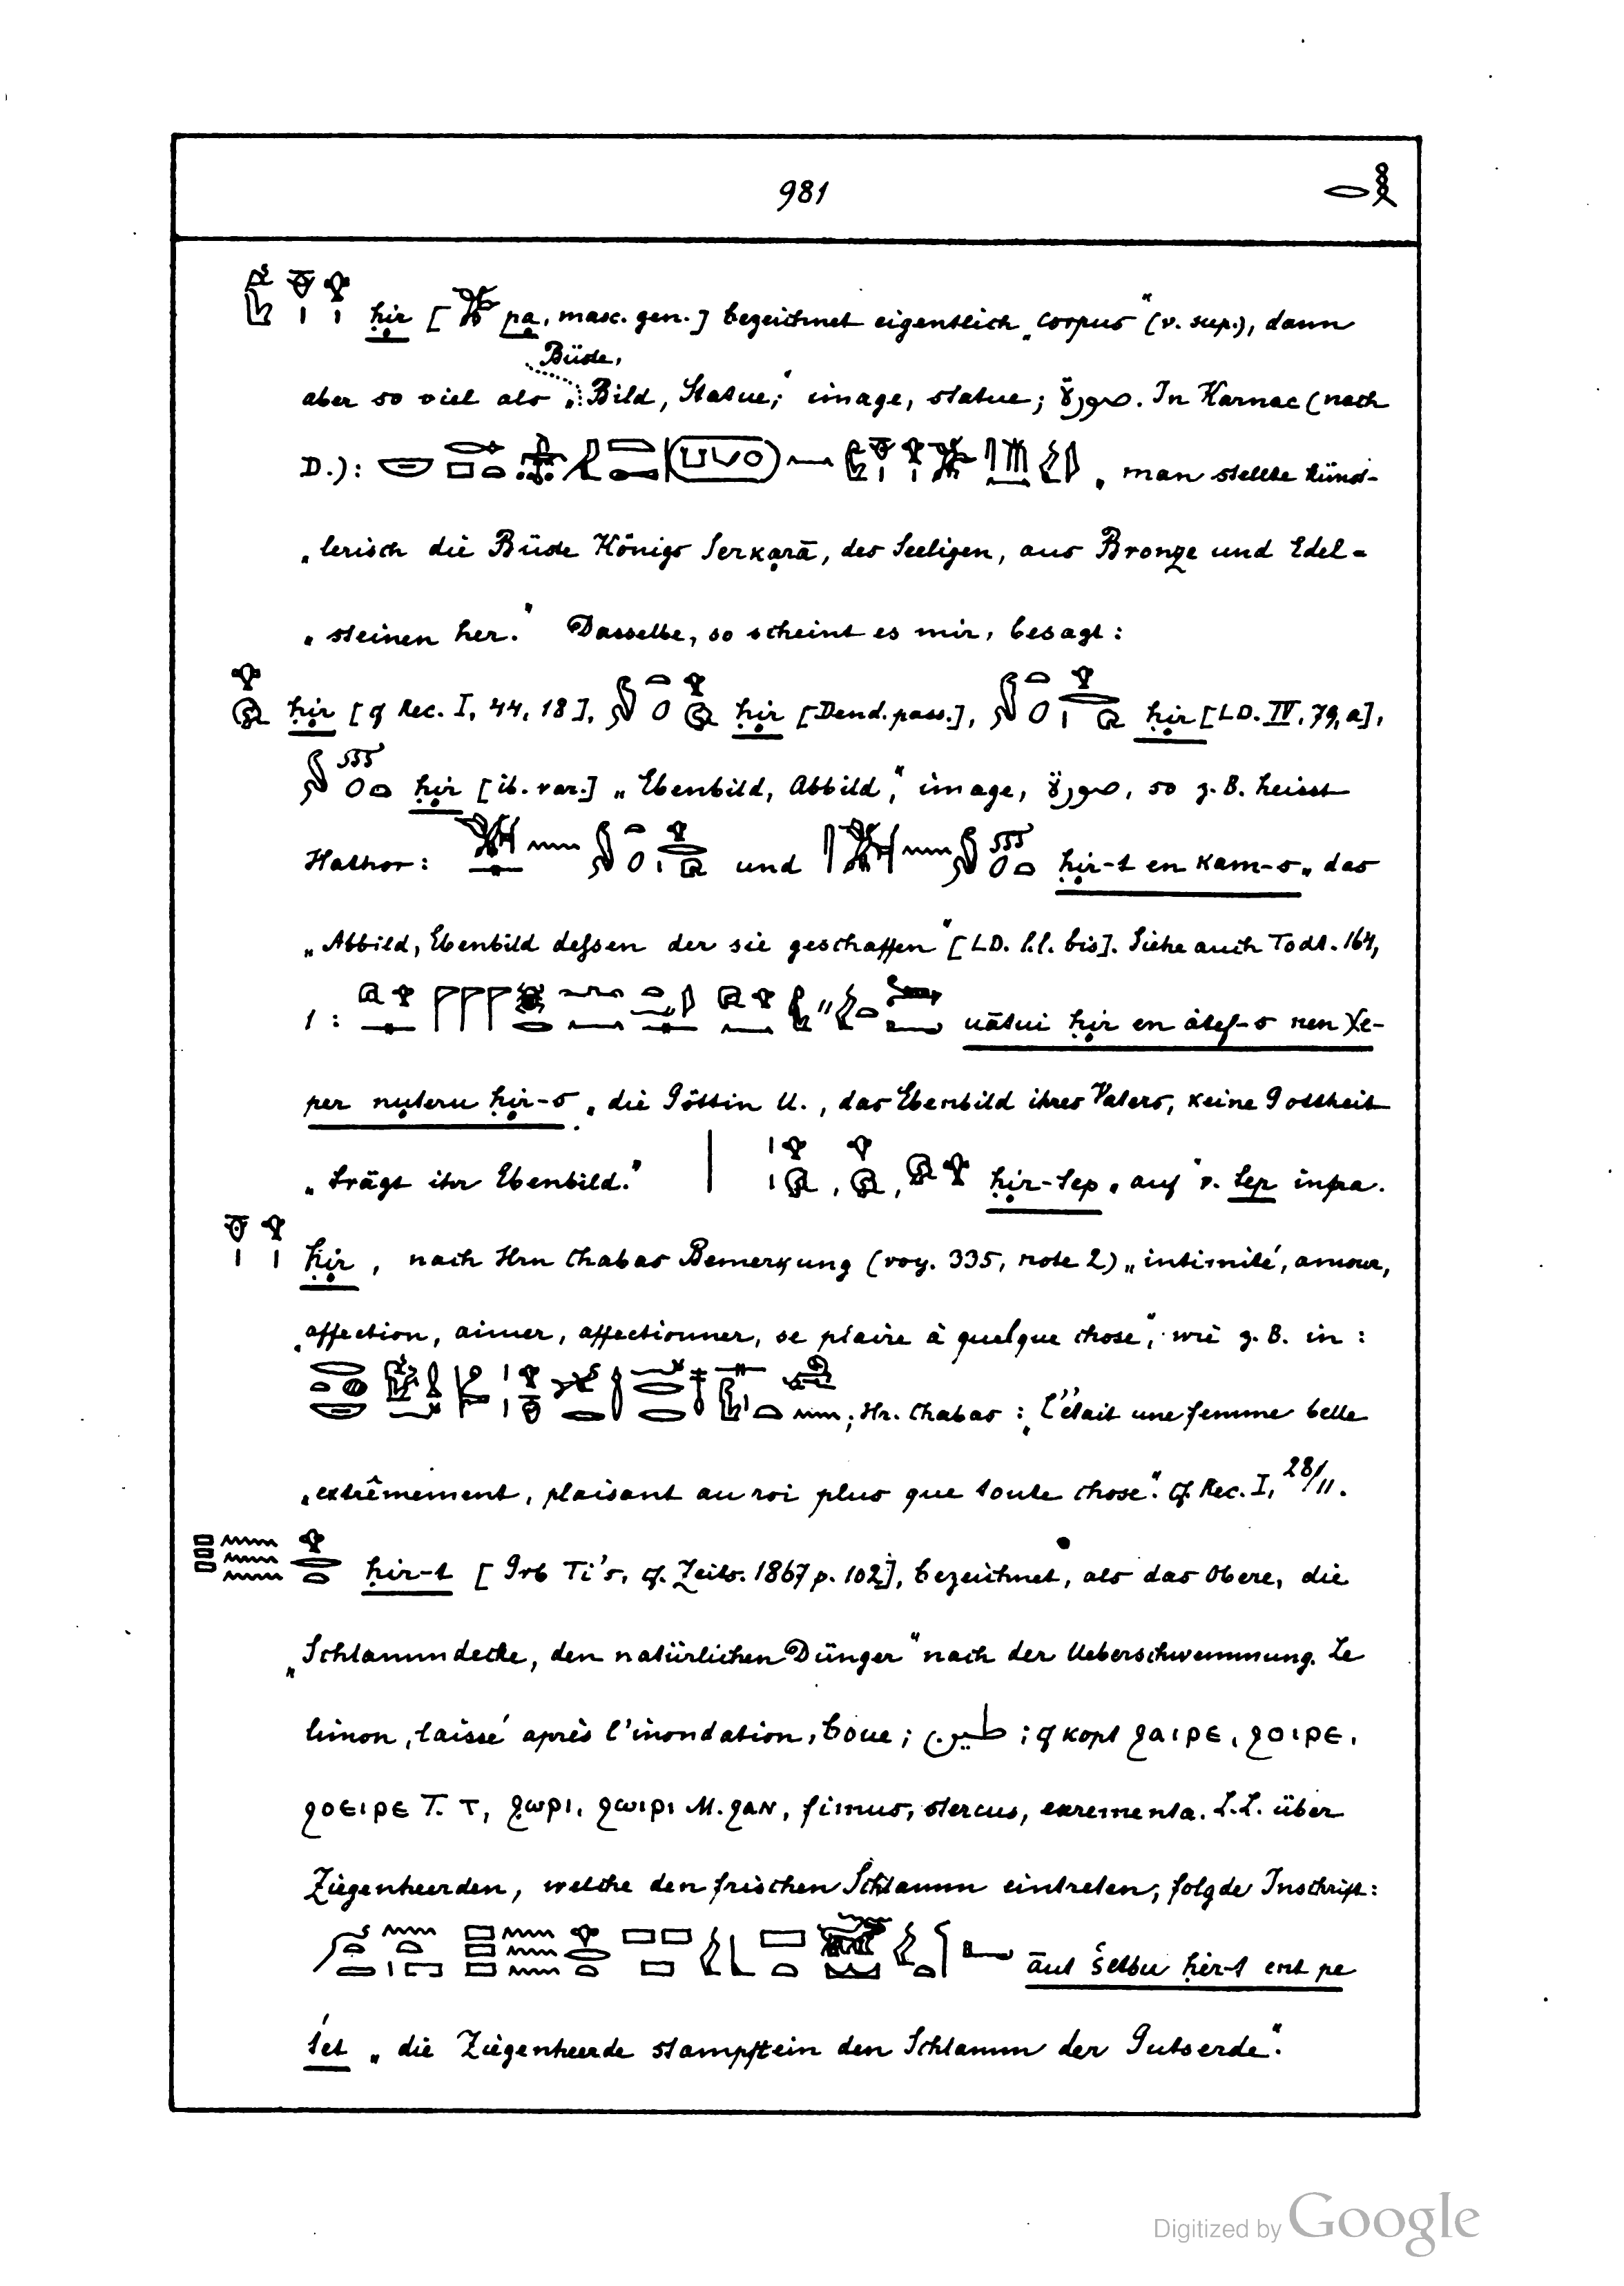 981
ḥir [pa, masc. gen.] bezeichnet eigentlich „corpus“ (v. sup.), dann
Büste,
aber so viel als „Bild, Statue;“ image, statue; صورة. In Karnac (nach
D.): „man stellte künst-
„lerisch die Büste Königs Serkarā, des Seeligen, aus Bronze und Edel-
„steinen her.“ Dasselbe, so scheint es mir, besagt:
ḥir [cf Rec. I, 44, 18], ḥir [Dend. pass.], ḥir [LD. IV, 79, a],
ḥir [ib. var.] „Ebenbild, Abbild“, image, صورة, so z. B. heisst
Hathor: und ḥir-t en kam-s „das
„Abbild, Ebenbild dessen der sie geschaffen“ [LD. l.l. bis]. Siehe auch Todt. 164,
1: uātui ḥir en átef-s nen χe-
per nuteru ḥir-s „die Göttin U., das Ebenbild ihres Vaters, keine Gottheit
„trägt ihr Ebenbild.“ | ḥir-tep „auf“ v. tep infra.
ḥir, nach Hrn Chabas Bemerkung (voy. 335, note 2) „intimité, amour,
„affection, aimer, affectionner, se plaire à quelque chose“, wie z. B. in:
; Hr. Chabas: „C'était une femme belle
„extrêmement, plaisant au roi plus que toute chose“. Cf. Rec. I, 28/11.
ḥir-t [Grb Ti's, cf. Zeits. 1867 p. 102], bezeichnet, als das Obere, die
„Schlammdecke, den natürlichen Dünger“ nach der Ueberschwemmung. Le
limon, laissé après l'inondation, boue; طين; cf kopt ϩⲁⲓⲣⲉ, ϩⲟⲓⲣⲉ,
ϩⲟⲉⲓⲣⲉ T. T, ϩⲱⲣⲓ, ϩⲱⲓⲣⲓ M. ϩⲁⲛ, fimus, stercus, excrementa. L.L. über
Ziegenheerden, welche den frischen Schlamm eintreten, folgde Inschrift:
āut šetbu ḥir-t ent pe
set „die Ziegenheerde stampft ein den Schlamm der Gutserde“.
Digitized by Google